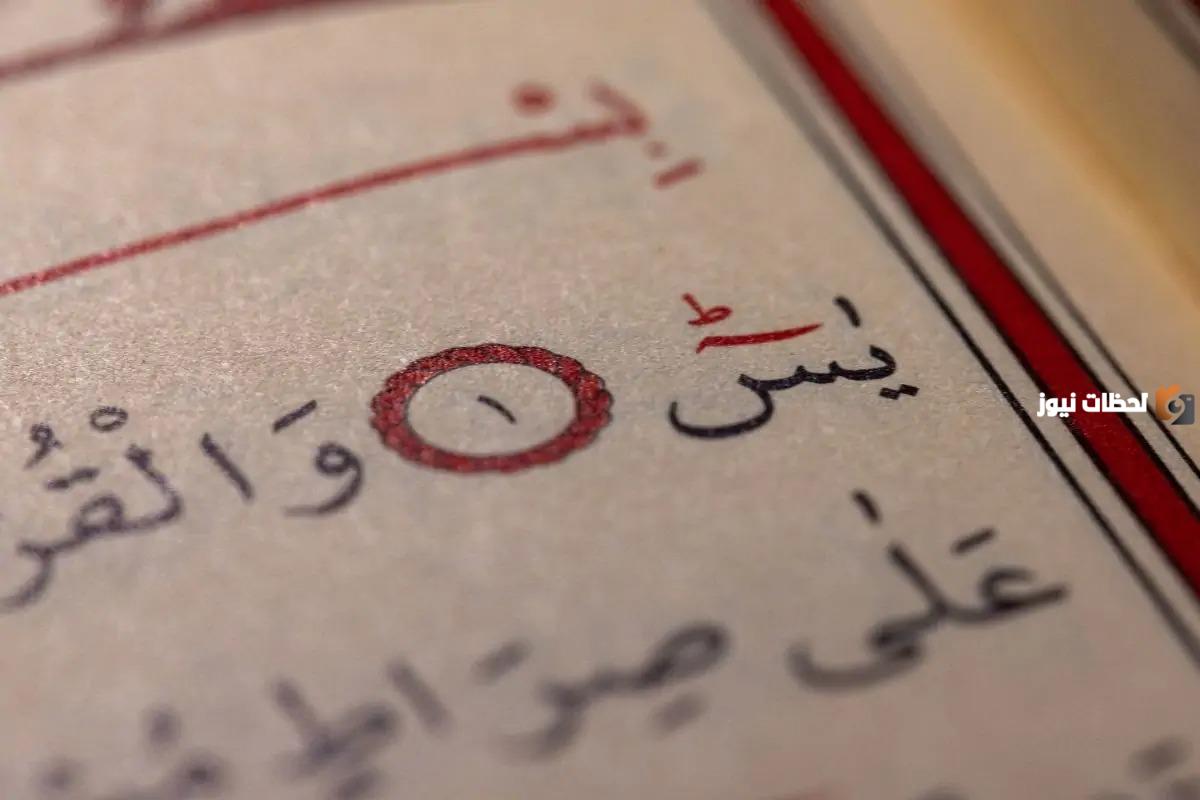 يٰسٓ ۚ ١ وَالْقُر
عَلٰى صِرَاطٍ
لحظات نيوز